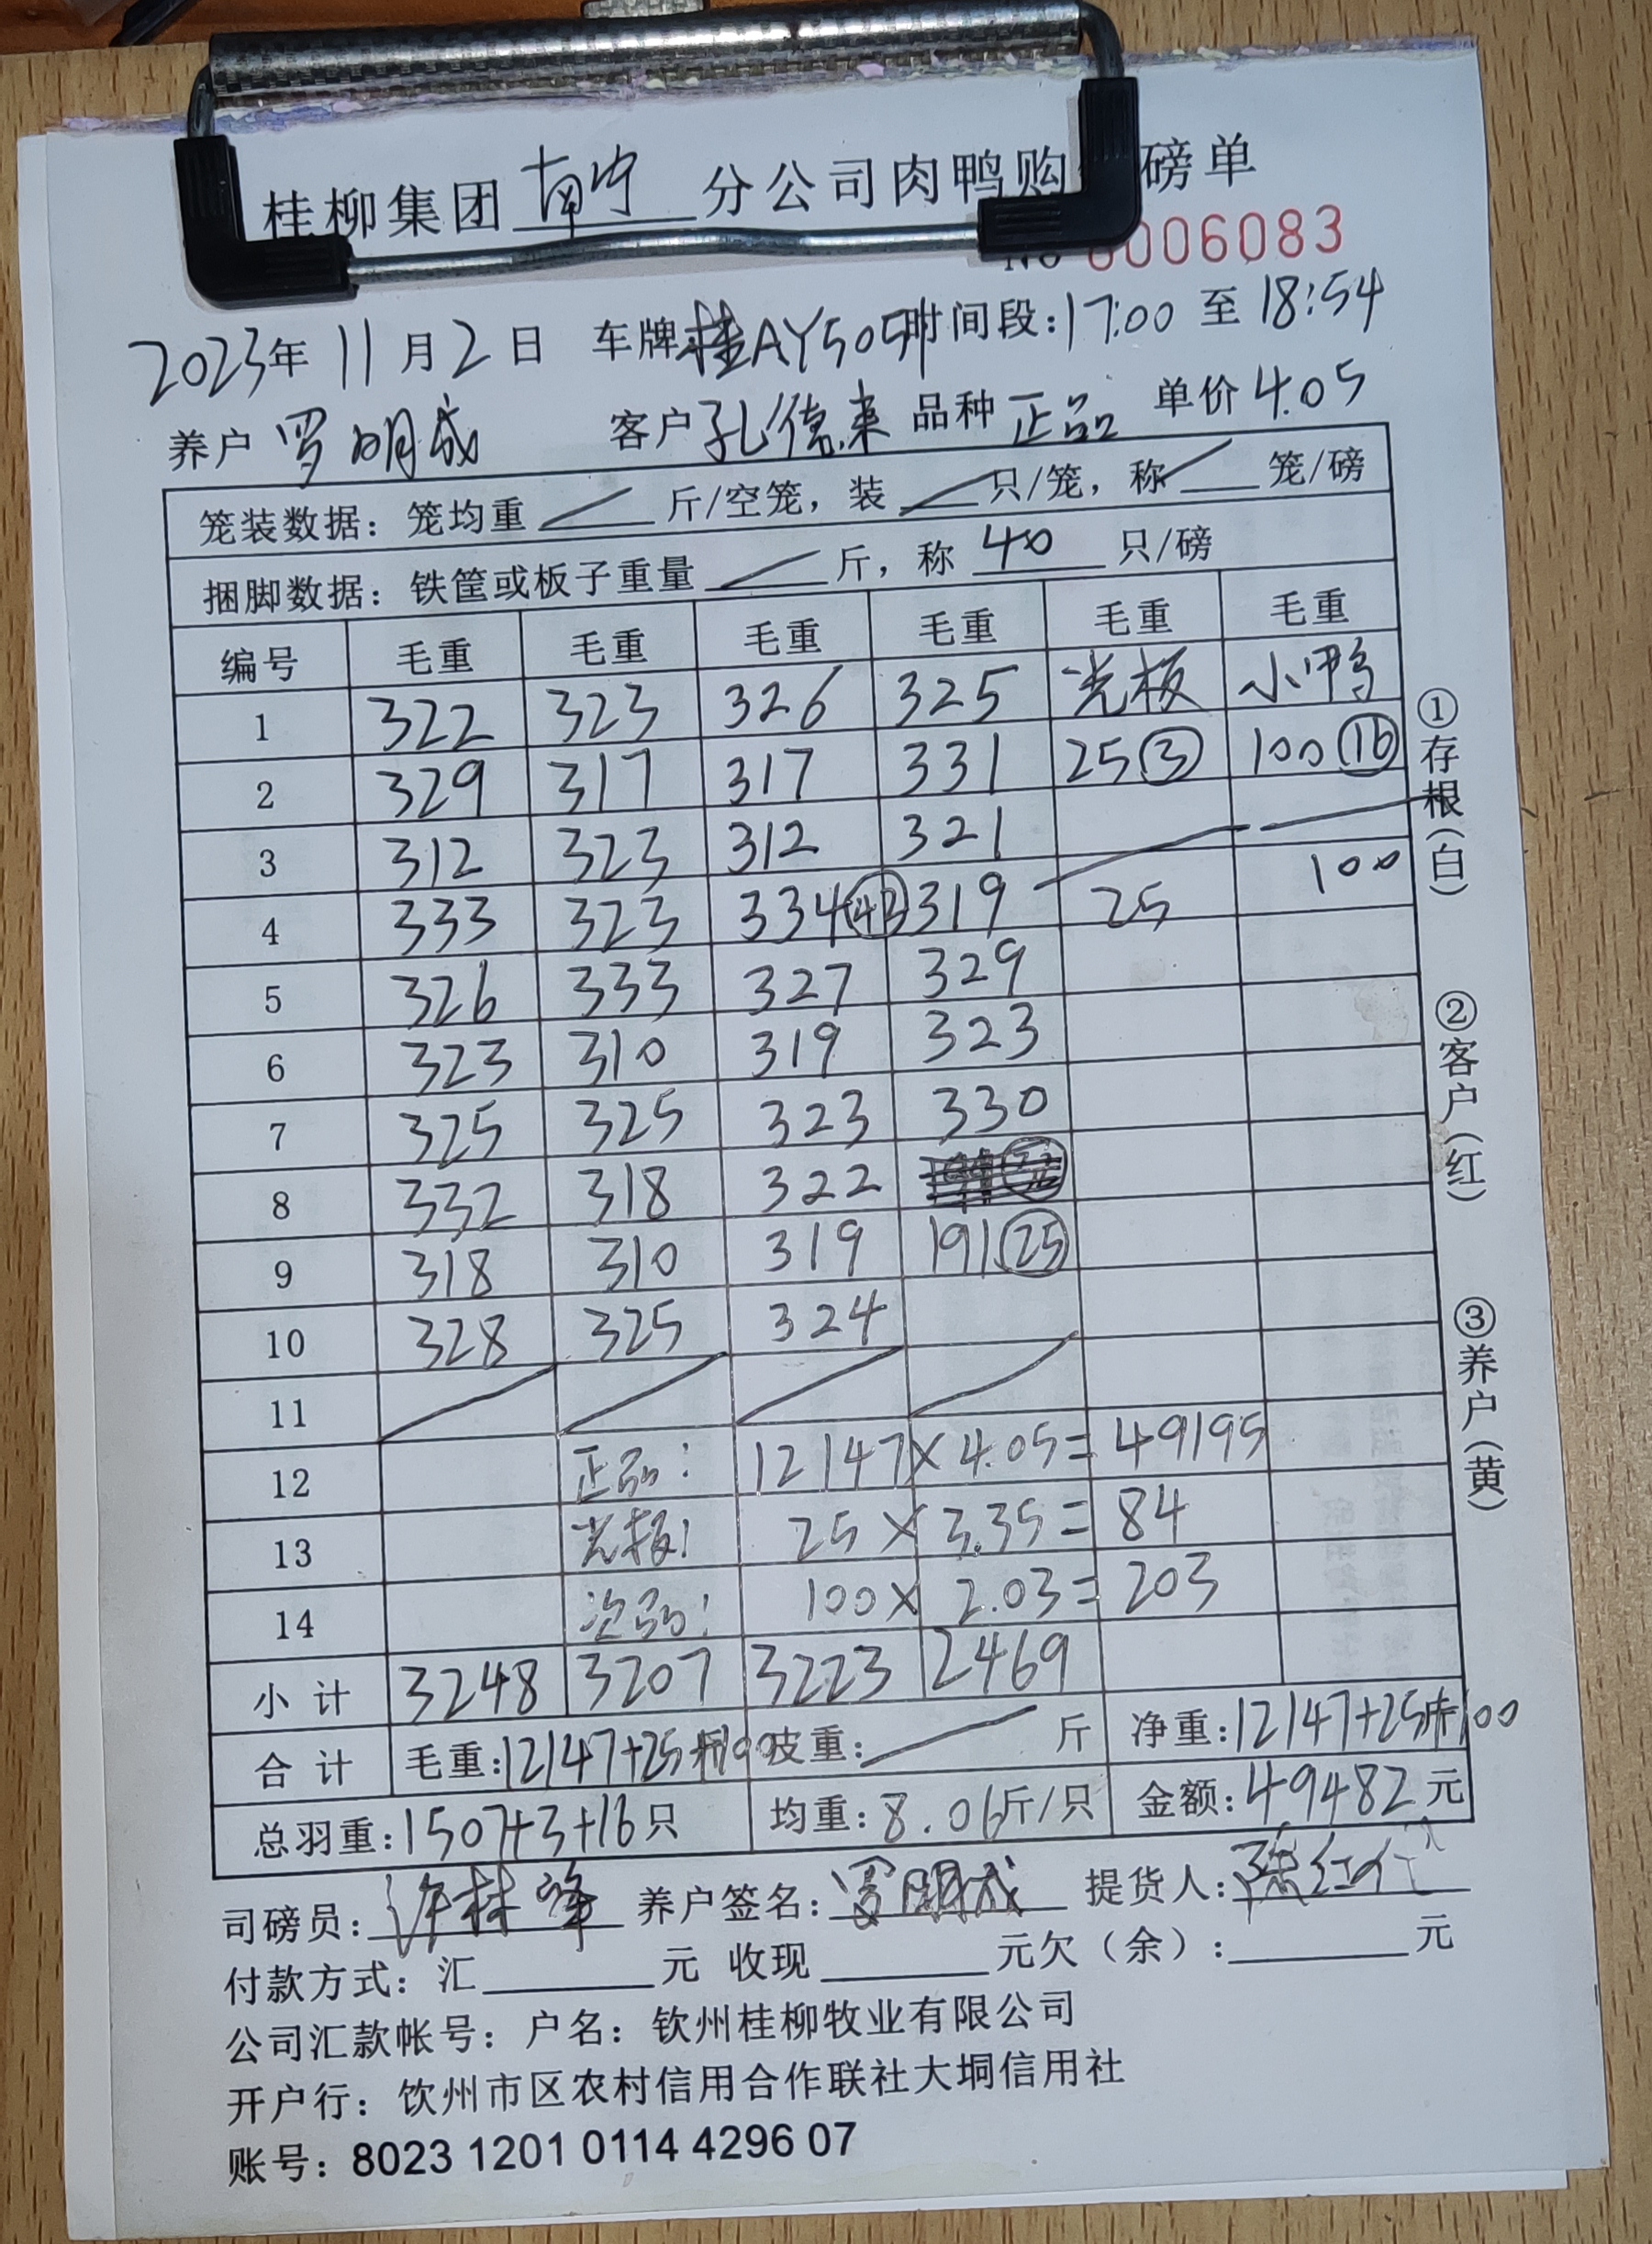 桂柳集团 南宁 分公司肉鸭购 磅单
No 0006083
2023年 11月2日 车牌桂AY505 时间段:17:00 至 18:54
养户 罗明成 客户 孔德来 品种 正品 单价 4.05
笼装数据:笼均重 / 斤/空笼,装 / 只/笼,称 / 笼/磅
捆脚数据:铁筐或板子重量 / 斤,称 40 只/磅
编号 毛重 毛重 毛重 毛重 毛重 毛重
1 322 323 326 325 光板 小鸭
2 329 317 317 331 25③ 100⑯
3 312 323 312 321
4 333 323 334 319 25 100
5 326 333 327 329
6 323 310 319 323
7 325 325 323 330
8 332 318 322
9 318 310 319 191㉕
10 328 325 324
11 / / / /
12 正品: 12147×4.05=49195
13 光板: 25×3.35=84
14 次品: 100×2.03=203
小计 3248 3207 3223 2469
合计 毛重:12147+25+100 皮重: / 斤 净重:12147+25+100
总羽重:1507+3+16只 均重:8.06斤/只 金额:49482元
司磅员:许林峰 养户签名:罗明成 提货人:陈红
付款方式:汇 元 收现 元欠(余): 元
公司汇款帐号:户名:钦州桂柳牧业有限公司
开户行:饮州市区农村信用合作联社大垌信用社
账号:8023 1201 0114 4296 07
①存根(白)
②客户(红)
③养户(黄)